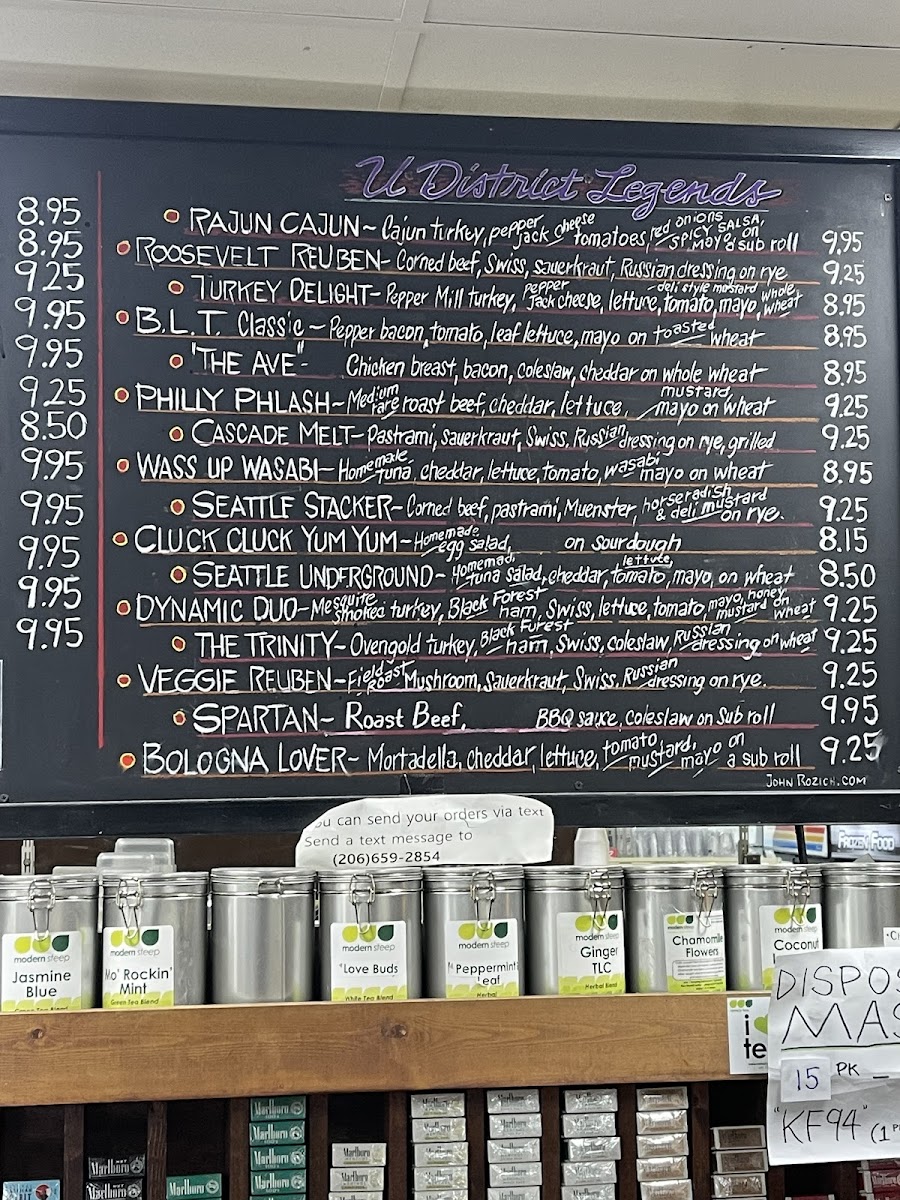 U District Legends
8.95
8.95
9.25
9.95
9.95
9.25
8.50
9.95
9.95
9.95
9.95
9.95
RAJUN CAJUN~ Cajun turkey, pepper jack cheese tomatoes, red onions SPICY SALSA, mayo on a sub roll 9.95
ROOSEVELT REUBEN- Corned beef, Swiss, sauerkraut, Russian dressing on rye 9.25
TURKEY DELIGHT- Pepper Mill turkey, pepper Jack cheese, lettuce, tomato, mayo, deli style mustard whole wheat 8.95
B.L.T. Classic ~ Pepper bacon, tomato, leaf lettuce, mayo on toasted wheat 8.95
"THE AVE"- Chicken breast, bacon, coleslaw, cheddar on whole wheat 8.95
PHILLY PHLASH~ Medium rare roast beef, cheddar, lettuce, mustard, mayo on wheat 9.25
CASCADE MELT- Pastrami, sauerkraut, Swiss, Russian dressing on rye, grilled 9.25
WASS UP WASABI~ Homemade tuna, cheddar, lettuce, tomato, wasabi mayo on wheat 8.95
SEATTLE STACKER~ Corned beef, pastrami, Muenster, horseradish & deli mustard on rye. 9.25
CLUCK CLUCK YUM YUM~ Homemade egg salad, on sourdough 8.15
SEATTLE UNDERGROUND~ Homemade tuna salad, cheddar, lettuce, tomato, mayo, on wheat 8.50
DYNAMIC DUO~ Mesquite smoked turkey, Black Forest ham, Swiss, lettuce, tomato, mayo, honey mustard on wheat 9.25
THE TRINITY~ Ovengold turkey, Black Forest ham, Swiss, coleslaw, Russian dressing on wheat 9.25
VEGGIE REUBEN~ Field Roast Mushroom, Sauerkraut, Swiss, Russian dressing on rye. 9.25
SPARTAN~ Roast Beef, BBQ sauce, coleslaw on Sub roll 9.95
BOLOGNA LOVER~ Mortadella, cheddar, lettuce, tomato, mustard, mayo on a sub roll 9.25
JOHN ROZICH.COM
You can send your orders via text
Send a text message to
(206)659-2854
FROZEN FOOD
modern steep
Jasmine
Blue
Green Tea Blend
modern steep
Mo' Rockin'
Mint
Green Tea Blend
modern steep
Love Buds
White Tea Blend
modern steep
Peppermint
Leaf
Herbal
modern steep
Ginger
TLC
Herbal Blend
Chamomile
Flowers
modern steep
Coconut
i
te
DISPOS
MAS
15 PK —
"KF94" (1
Marlboro
Marlboro
Marlboro
Marlboro
Marlboro
Marlboro
Marlboro
Marlboro
Marlboro